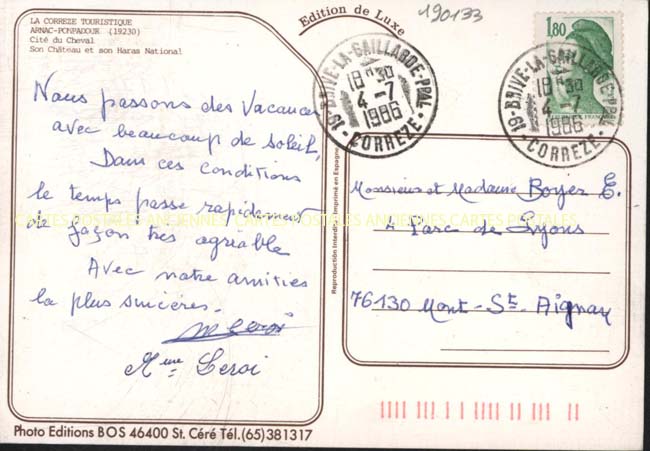 LA CORREZE TOURISTIQUE
ARNAC-POMPADOUR (19230)
Cité du Cheval
Son Château et son Haras National
Edition de Luxe
190133
1,80
FRANCE
19-BRIVE-LA-GAILLARDE-PPAL
18H30
4-7
1986
CORREZE
19-BRIVE-LA-GAILLARDE-PPAL
18H30
4-7
1986
CORREZE
Nous passons des Vacances
avec beaucoup de soleil,
Dans ces conditions
le temps passe rapidement
de façon très agréable
Avec notre amitiés
la plus sincères.
Mme Leroi
Reproduction Interdite - Imprimé en Espagne
Monsieur et Madame Boyer E.
4 Parc de Lyons
76130 Mont-St-Aignan
CARTES POSTALES ANCIENNES CARTES POSTALES ANCIENNES CARTES POSTALES
Photo Editions BOS 46400 St. Céré Tél.(65)381317